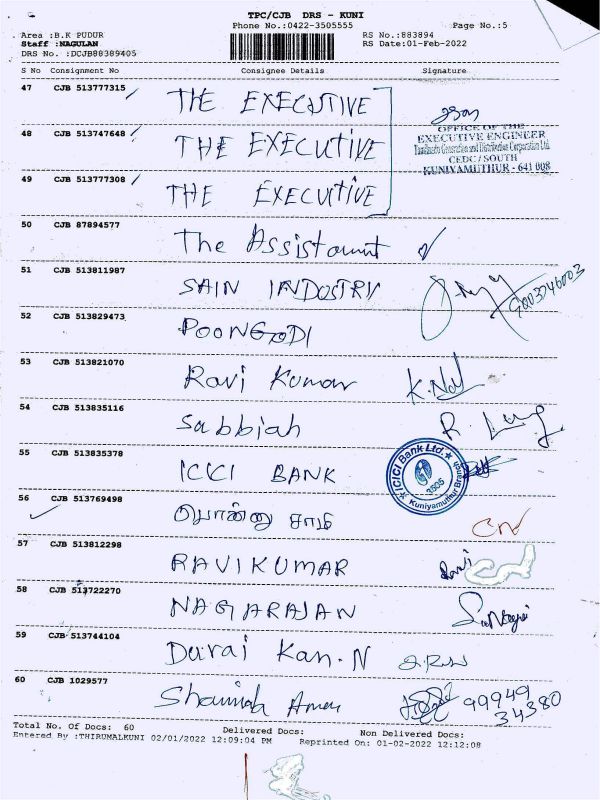 TPC/CJB DRS - KUNI
Phone No.:0422-3505555 Page No.:5
Area :B.K PUDUR RS No.:883894
Staff :NAGULAN RS Date:01-Feb-2022
DRS No. :DCJB88389405
S No Consignment No Consignee Details Signature
47 CJB 513777315 THE EXECUTIVE
48 CJB 513747648 THE EXECUTIVE
OFFICE OF THE
EXECUTIVE ENGINEER
Tamilnadu Generation and Distribution Corporation Ltd.
CEDC / SOUTH
KUNIYAMUTHUR - 641 008
49 CJB 513777308 THE EXECUTIVE
50 CJB 87894577 The Assistant
51 CJB 513811987 SAIN INDUSTRY 9003746003
52 CJB 513829473 POONGODI
53 CJB 513821070 Ravi Kumar
54 CJB 513835116 Sabbiah
55 CJB 513835378 ICICI BANK
ICICI Bank Ltd. 3505 Kuniyamuthur Branch
56 CJB 513769498 பொன்னு சாமி
57 CJB 513812298 RAVIKUMAR Ravi
58 CJB 513722270 NAGARAJAN
59 CJB 513744104 Durai Kan.N
60 CJB 1029577 99949
34380
Total No. Of Docs: 60 Delivered Docs: Non Delivered Docs:
Entered By :THIRUMALKUNI 02/01/2022 12:09:04 PM Reprinted On: 01-02-2022 12:12:08